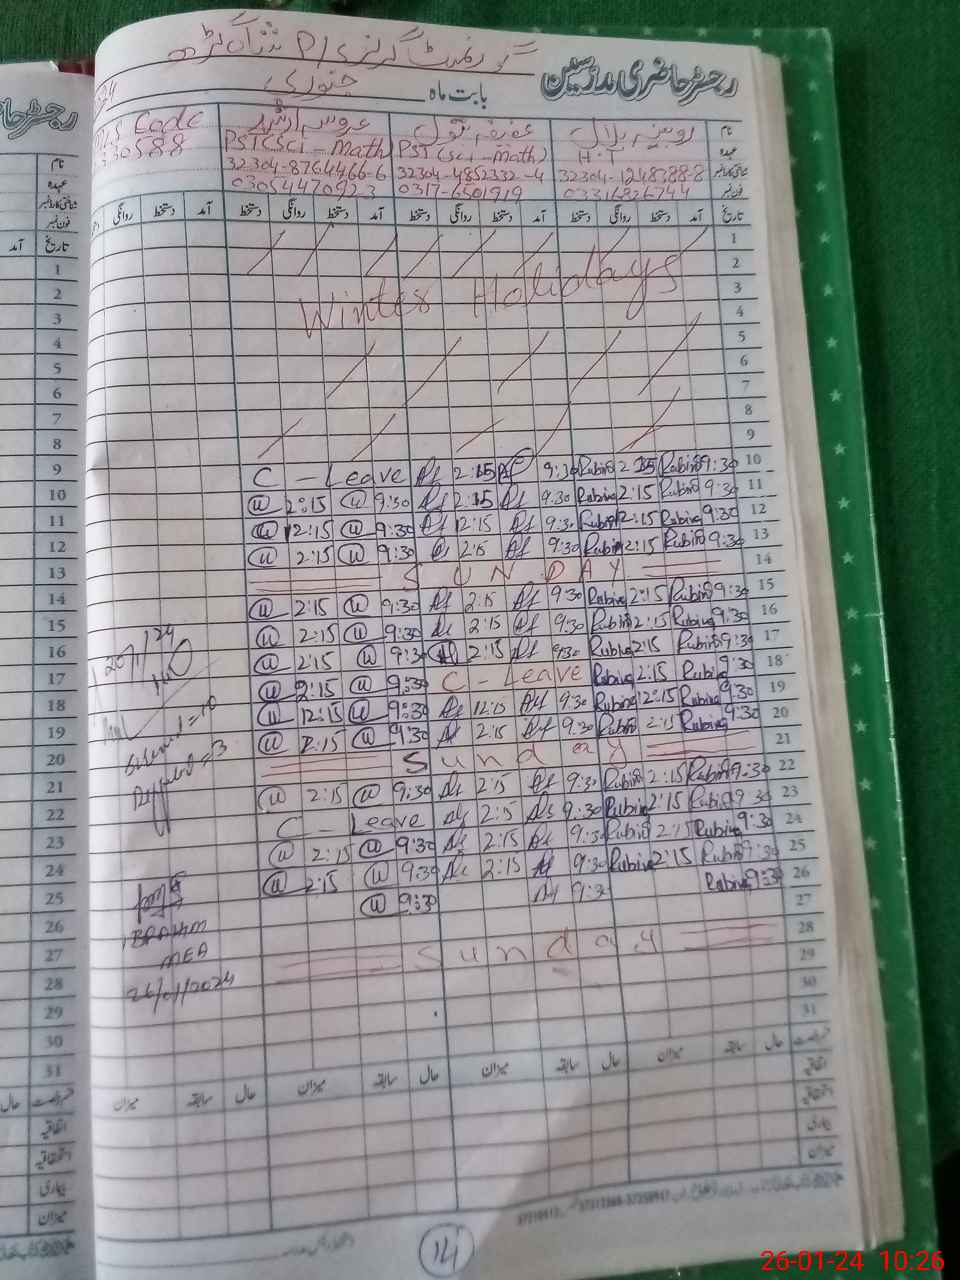 رجسٹر حاضری مدرسین
گورنمنٹ گرلز P/S شاہ گڑھ
بابت ماہ جنوری
نام روبینہ بلال عفیفہ بتول عروسہ ارشد
عہدہ H.T PST(Sci-Math) PST(Sci-Math)
شناختی کارڈ نمبر 32304-1248788-8 32304-4852332-4 32304-8764466-6
فون نمبر 03316826744 0317-6501919 03054470923
Code
30588
تاریخ آمد دستخط روانگی دستخط آمد دستخط روانگی دستخط آمد دستخط روانگی
1
2
3 Winter Holidays
4
5
6
7
8
9
10 9:30 Rubina 2:15 Rubina 9:30 2:15 C - Leave
11 9:30 Rubina 2:15 Rubina 9:30 2:15 9:30 2:15
12 9:30 Rubina 2:15 Rubina 9:30 2:15 9:30 2:15
13 9:30 Rubina 2:15 Rubina 9:30 2:15 9:30 2:15
14 SUNDAY
15 9:30 Rubina 2:15 Rubina 9:30 2:15 9:30 2:15
16 9:30 Rubina 2:15 Rubina 9:30 2:15 9:30 2:15
17 9:30 Rubina 2:15 Rubina 9:30 2:15 9:30 2:15
18 9:30 Rubina 2:15 Rubina C - Leave 9:30 2:15
19 9:30 Rubina 2:15 Rubina 9:30 2:15 9:30 2:15
20 9:30 Rubina 2:15 Rubina 9:30 2:15 9:30 2:15
21 Sunday
22 9:30 Rubina 2:15 Rubina 9:30 2:15 9:30 2:15
23 9:30 Rubina 2:15 Rubina 9:30 2:15 C - Leave
24 9:30 Rubina 2:15 Rubina 9:30 2:15 9:30 2:15
25 9:30 Rubina 2:15 Rubina 9:30 2:15 9:30 2:15
26 9:30 Rubina 9:30 9:30
27
28 Sunday
29
30
31
IBRAHIM
MEA
26/01/2024
حال سابقہ میزان حال سابقہ میزان حال سابقہ میزان
اتفاقیہ
استحقاقیہ
بیماری
میزان
14
رجسٹر حا
نام
عہدہ
شناختی کارڈ نمبر
فون نمبر
تاریخ آمد
1
2
3
4
5
6
7
8
9
10
11
12
13
14
15
16
17
18
19
20
21
22
23
24
25
26
27
28
29
30
31
حال
اتفاقیہ
استحقاقیہ
بیماری
میزان
26-01-24 10:26